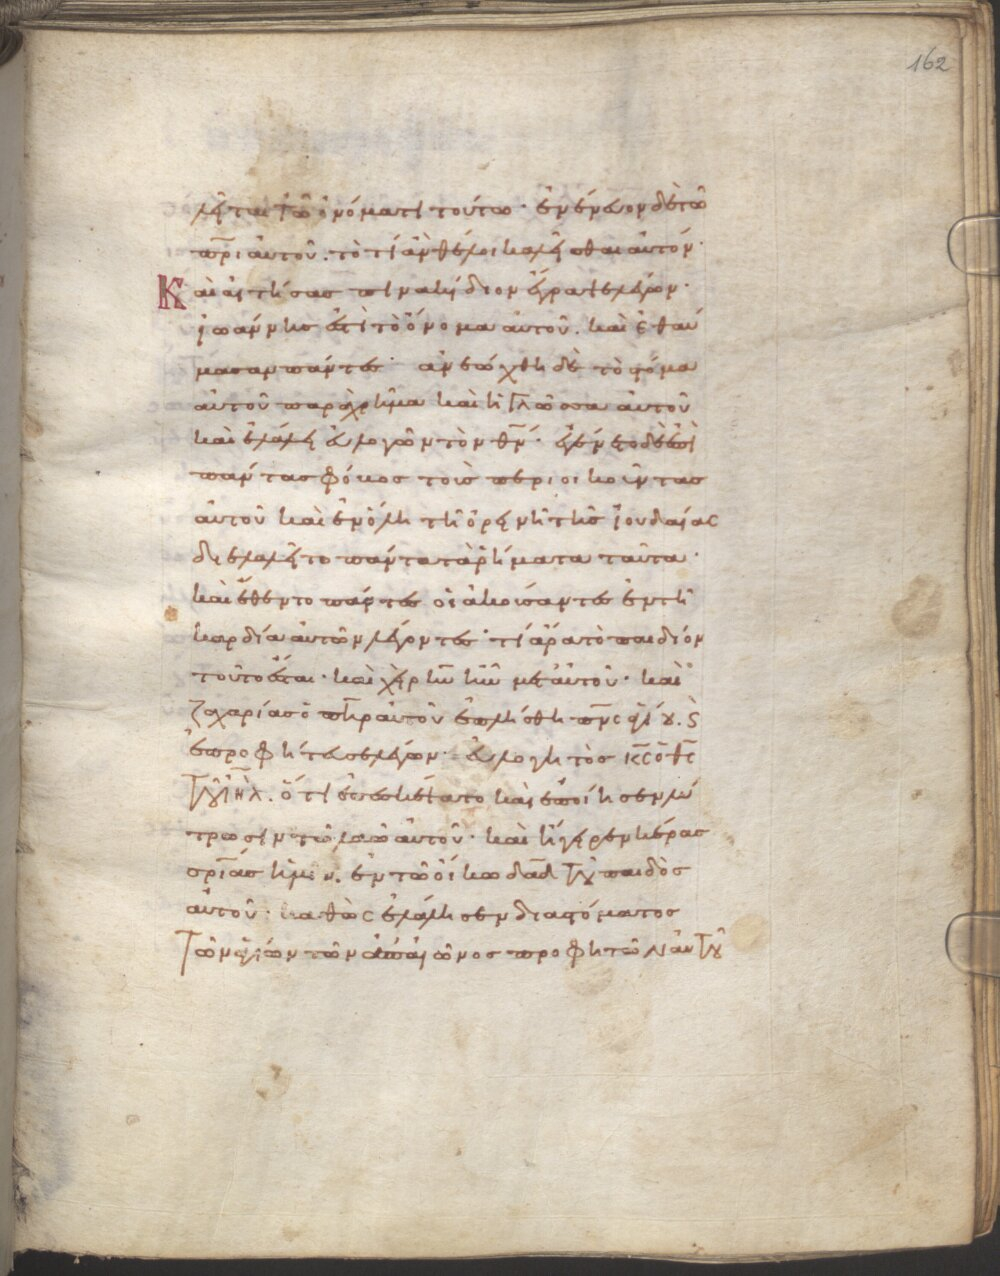 162
λεῖται τῶ ὀνόματι τούτω· ἐνένευον δὲ τῶ
π̅ρ̅ι αὐτοῦ. τὸ τί ἂν θέλοι καλεῖσθαι αὐτόν·
Καὶ αἰτήσας πινακίδιον ἔγραψε λέγων·
ἰωάννης ἐστὶ τὸ ὄνομα αὐτοῦ. καὶ ἐθαύ
μασαν πάντες· ἀνεώχθη δὲ τὸ στόμα
αὐτοῦ παραχρῆμα καὶ ἡ γλῶσσα αὐτοῦ
καὶ ἐλάλει εὐλογῶν τὸν θ̅ν̅· ἐγένετο δὲ ἐπὶ
πάντας φόβος τοὺς περιοικοῦντας
αὐτοῦ καὶ ἐν ὅλη τῆ ὀρεινῆ τῆς ἰουδαίας
διελαλεῖτο πάντα τὰ ῥήματα ταῦτα·
καὶ ἔθεντο πάντες οἱ ἀκούσαντες ἐν τῆ
καρδία αὐτῶν λέγοντες· τί ἄρα τὸ παιδίον
τοῦτο ἔσται· καὶ χεὶρ κ̅υ̅ ἦν μετ' αὐτοῦ· καὶ
ζαχαρίας ὁ π̅η̅ρ αὐτοῦ ἐπλήσθη π̅ν̅ς ἁγίου. ϗ
ἐπροφήτευσε λέγων· εὐλογητὸς κ̅ς̅ ὁ θ̅ς̅
τοῦ ι̅η̅λ̅. ὅτι ἐπεσκέψατο καὶ ἐποίησε λύ
τρωσιν τῶ λαῶ αὐτοῦ· καὶ ἤγειρεν κέρας
σ̅ρ̅ίας ἡμῖν. ἐν τῶ οἴκω δα̅δ̅ τοῦ παιδὸς
αὐτοῦ· καθὼς ἐλάλησεν διὰ στόματος
τῶν ἁγίων τῶν ἀπ' αἰῶνος προφητῶν αὐτοῦ